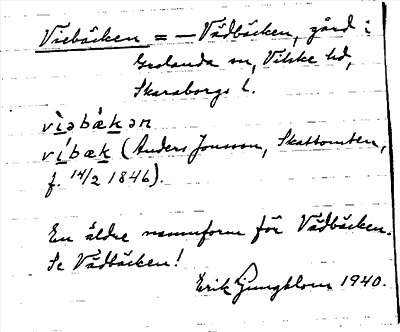 Viebäcken = – Vådbäcken, gård i
Grolanda sn, Vilske hd,
Skaraborgs l.
vìəbǽkən
víbæk (Anders Jonsson, Skattomten,
f. 14/2 1846).
En äldre namnform för Vådbäcken.
Se Vådbäcken!
Erik Ljungblom 1940.